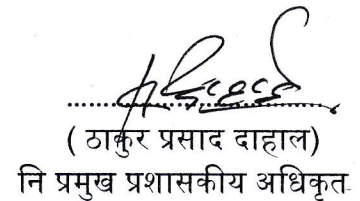 ( ठाकुर प्रसाद दाहाल)
नि प्रमुख प्रशासकीय अधिकृत